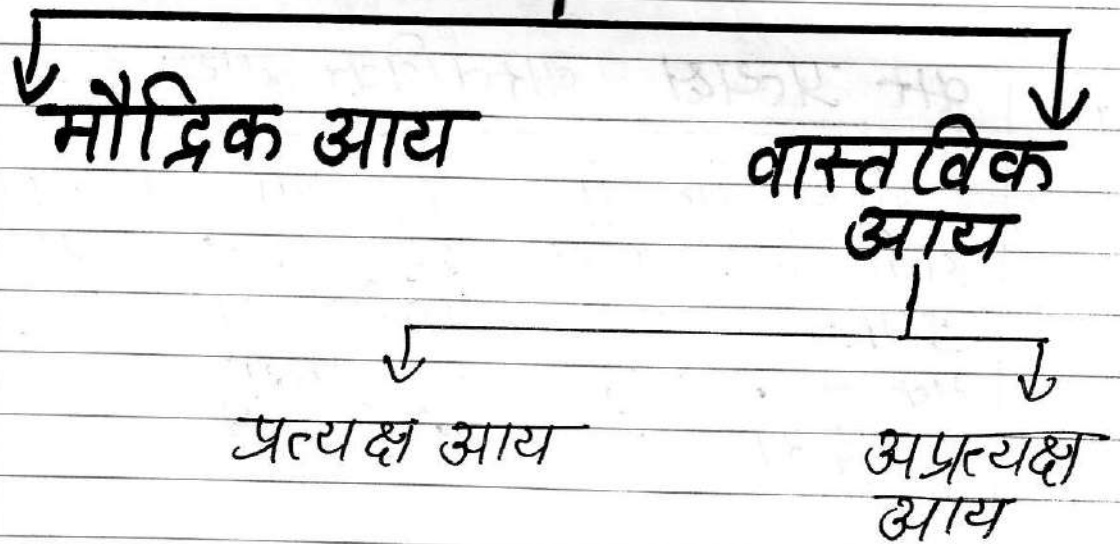 मौद्रिक आय
वास्तविक
आय
प्रत्यक्ष आय
अप्रत्यक्ष
आय